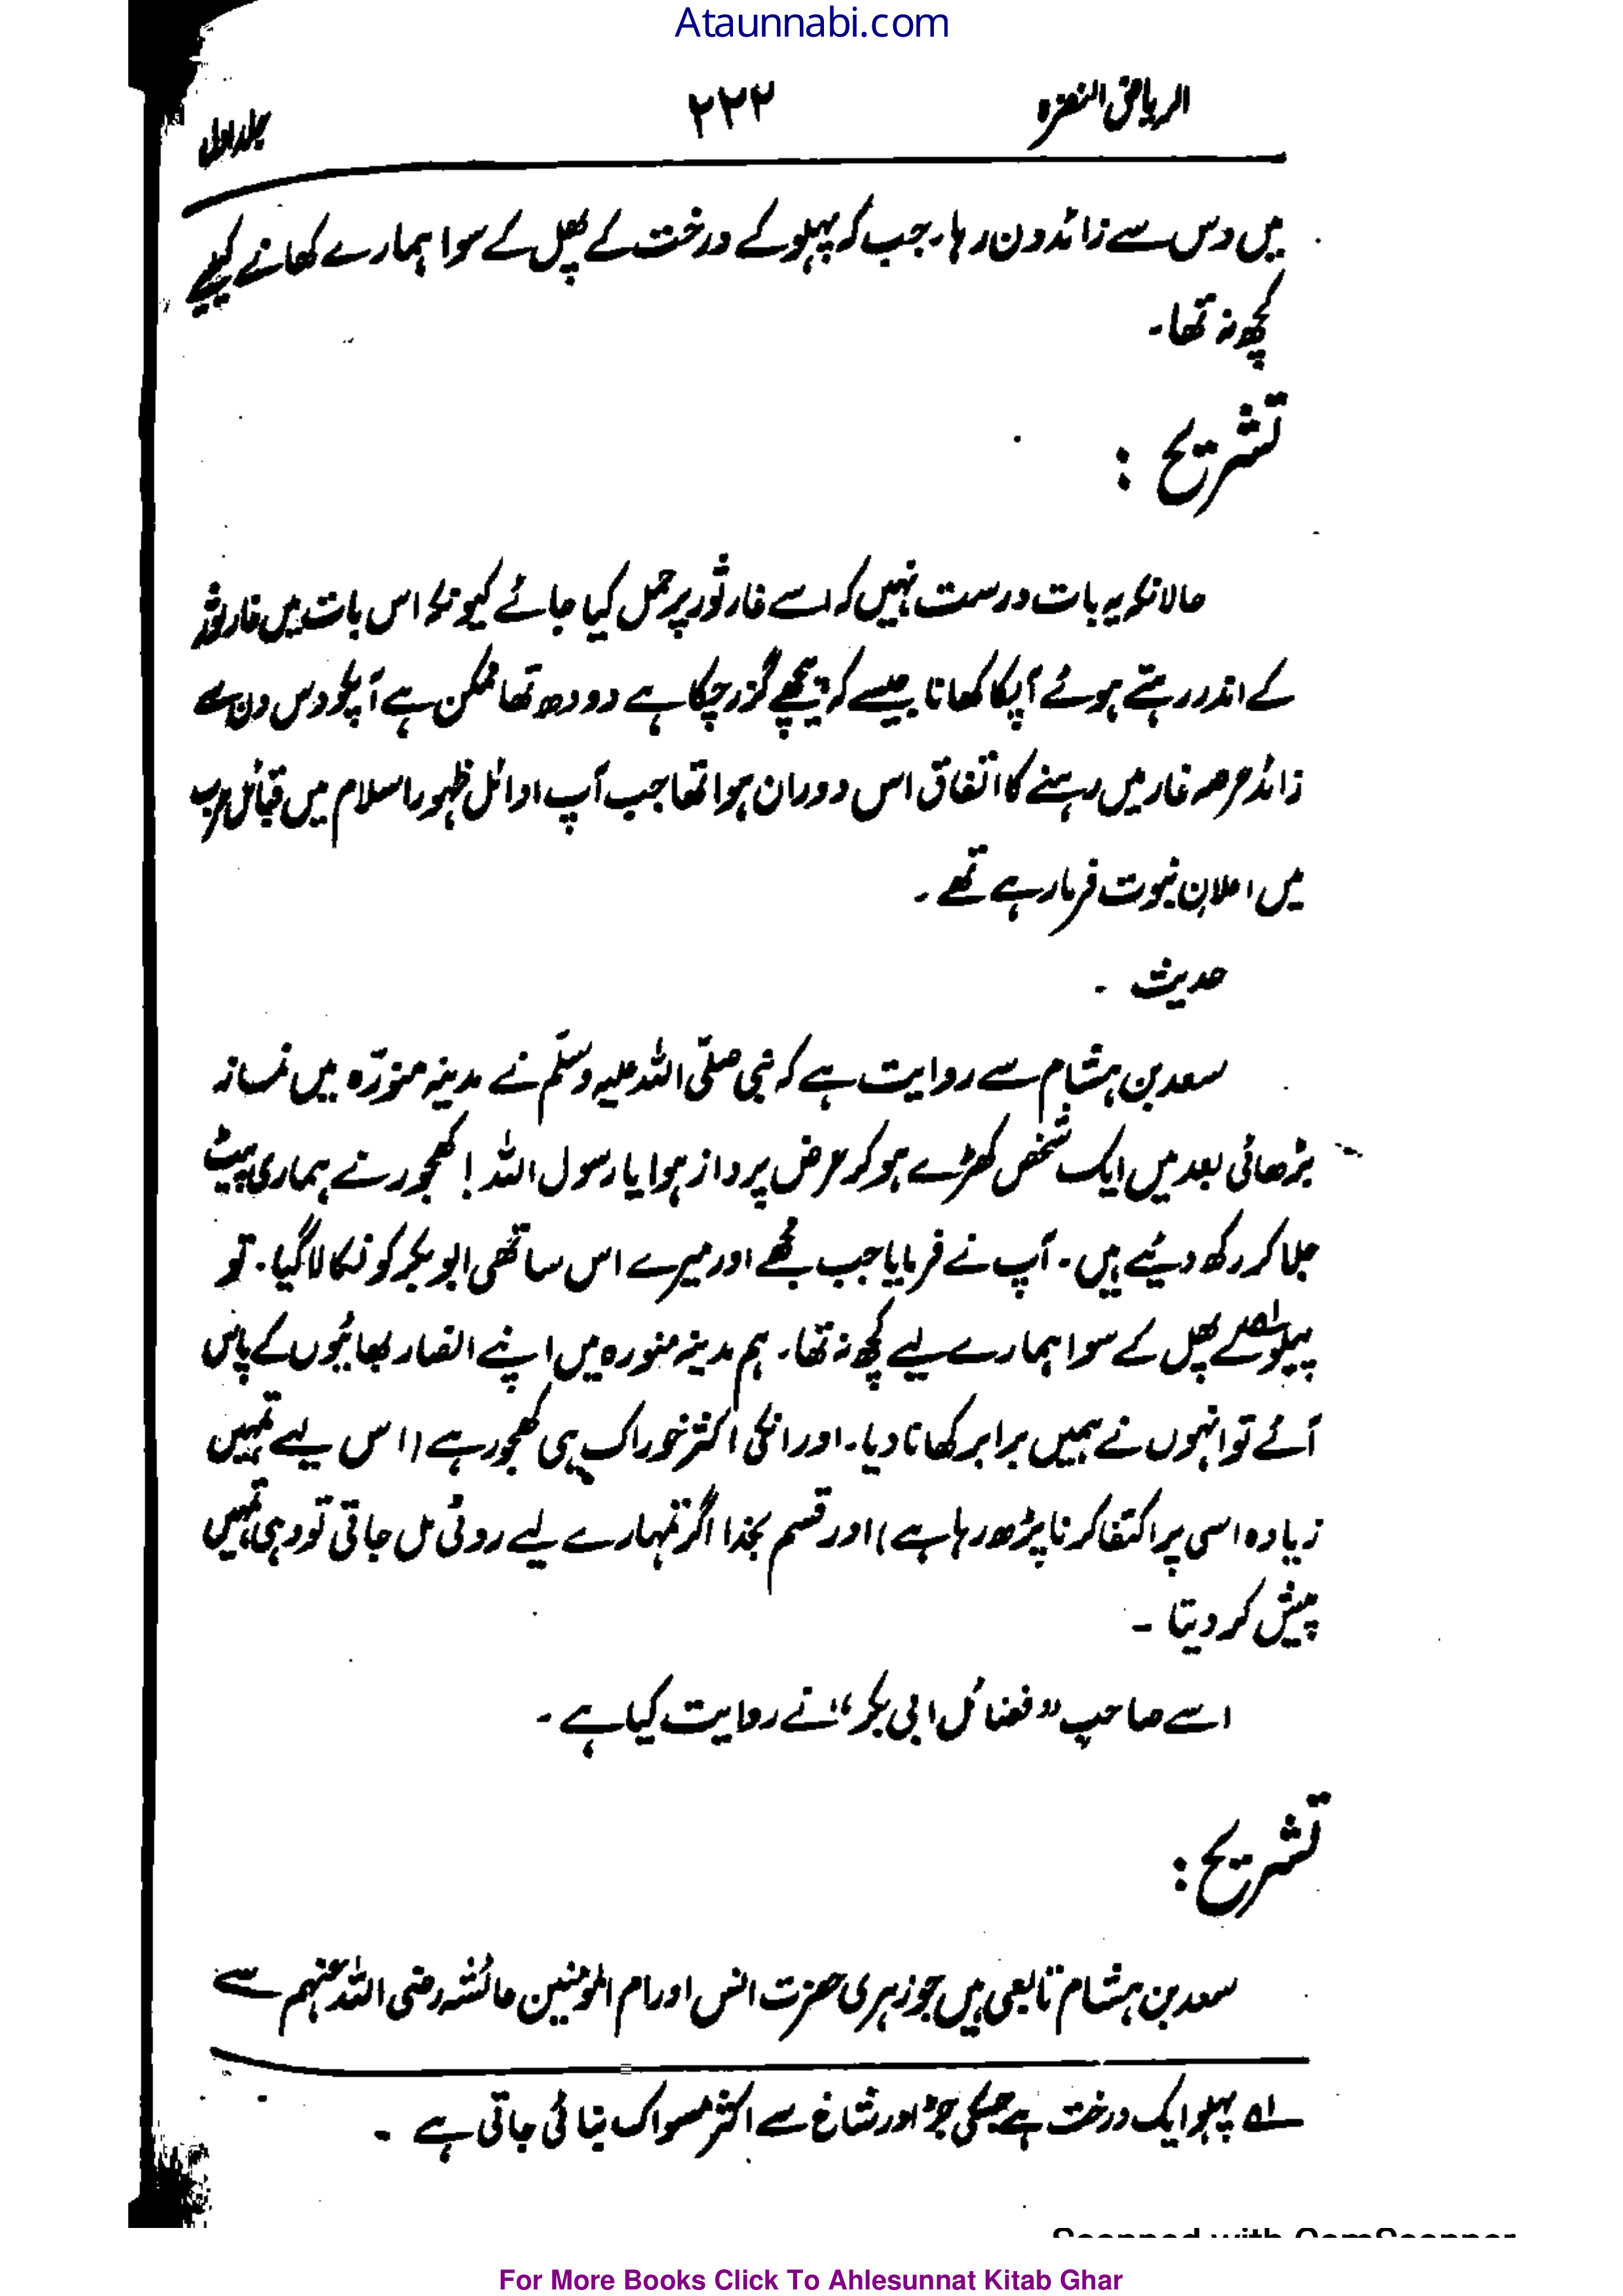 Ataunnabi.com
الریاض النضرہ ۲۲۲ جلد اول
میں دس سے زائد دن رہا۔ جب کہ پہلو کے درخت کے پھل کے سوا ہمارے کھانے کیلئے
کچھ نہ تھا۔
تشریح :
حالانکہ یہ بات درست نہیں کہ اسے غار ثور پر حمل کیا جائے کیونکہ اس بات میں غار ثور
کے اندر رہتے ہوئے آپکا کھانا جیسے کہ پیچھے گزر چکا ہے دودھ تھا ممکن ہے آپکو دس دن سے
زائد عرصہ غار میں رہنے کا اتفاق اس دوران ہوا تھا جب آپ اوائل ظہور اسلام میں قبائل عرب
میں اعلان نبوت فرما رہے تھے ۔
حدیث ۔
سعد بن ہشام سے روایت ہے کہ نبی صلّی اللہ علیہ وسلّم نے مدینہ منوّرہ میں نماز
پڑھائی بعد میں ایک شخص کھڑے ہو کر عرض پرداز ہوا یا رسول اللہ ! کھجور نے ہماری پیٹ
جلا کر رکھ دیئے ہیں ۔ آپ نے فرمایا جب مجھے اور میرے اس ساتھی ابو بکر کو نکالا گیا ۔ تو
پیلو لہ کے پھل کے سوا ہمارے لیے کچھ نہ تھا۔ ہم مدینہ منورہ میں اپنے انصار بھائیوں کے پاس
آئے تو انہوں نے ہمیں برابر کھانا دیا۔ اور انکی اکثر خوراک ہی کھجور ہے (اس لیے تمہیں
زیادہ اسی پر اکتفا کرنا پڑھ رہا ہے) اور قسم بخدا اگر تمہارے لیے روٹی مل جاتی تو وہی تمہیں
پیش کر دیتا ۔
اسے صاحب “فضائل ابی بکر” نے روایت کیا ہے ۔
تشریح :
سعد بن ہشام تابعی ہیں جو زہری حضرت انس اور ام المؤمنین عائشہ رضی اللہ عنہم سے
لہ پہلو ایک درخت ہے جسکی جڑ اور شاخ سے اکثر مسواک بنائی جاتی ہے ۔
Scanned with CamScanner
For More Books Click To Ahlesunnat Kitab Ghar